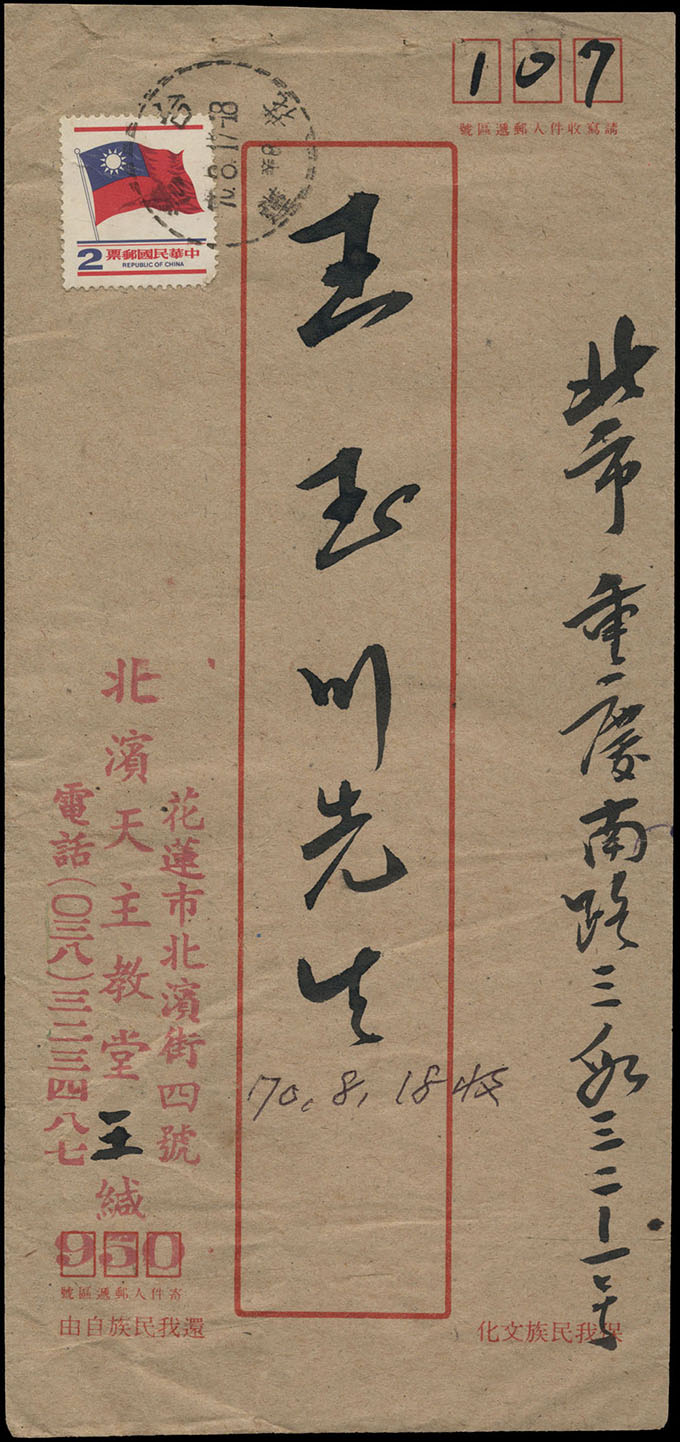 107
請寫收件人郵遞區號
北市重慶南路三段三二一一号
王玉川先生
70.8.18收
2 中華民國郵票
REPUBLIC OF CHINA
70.8.17.18
花蓮市北濱街四號
北濱天主教堂 王 緘
電話(〇三八)三二三四八七
950
寄件人郵遞區號
還我民族自由
保我民族文化